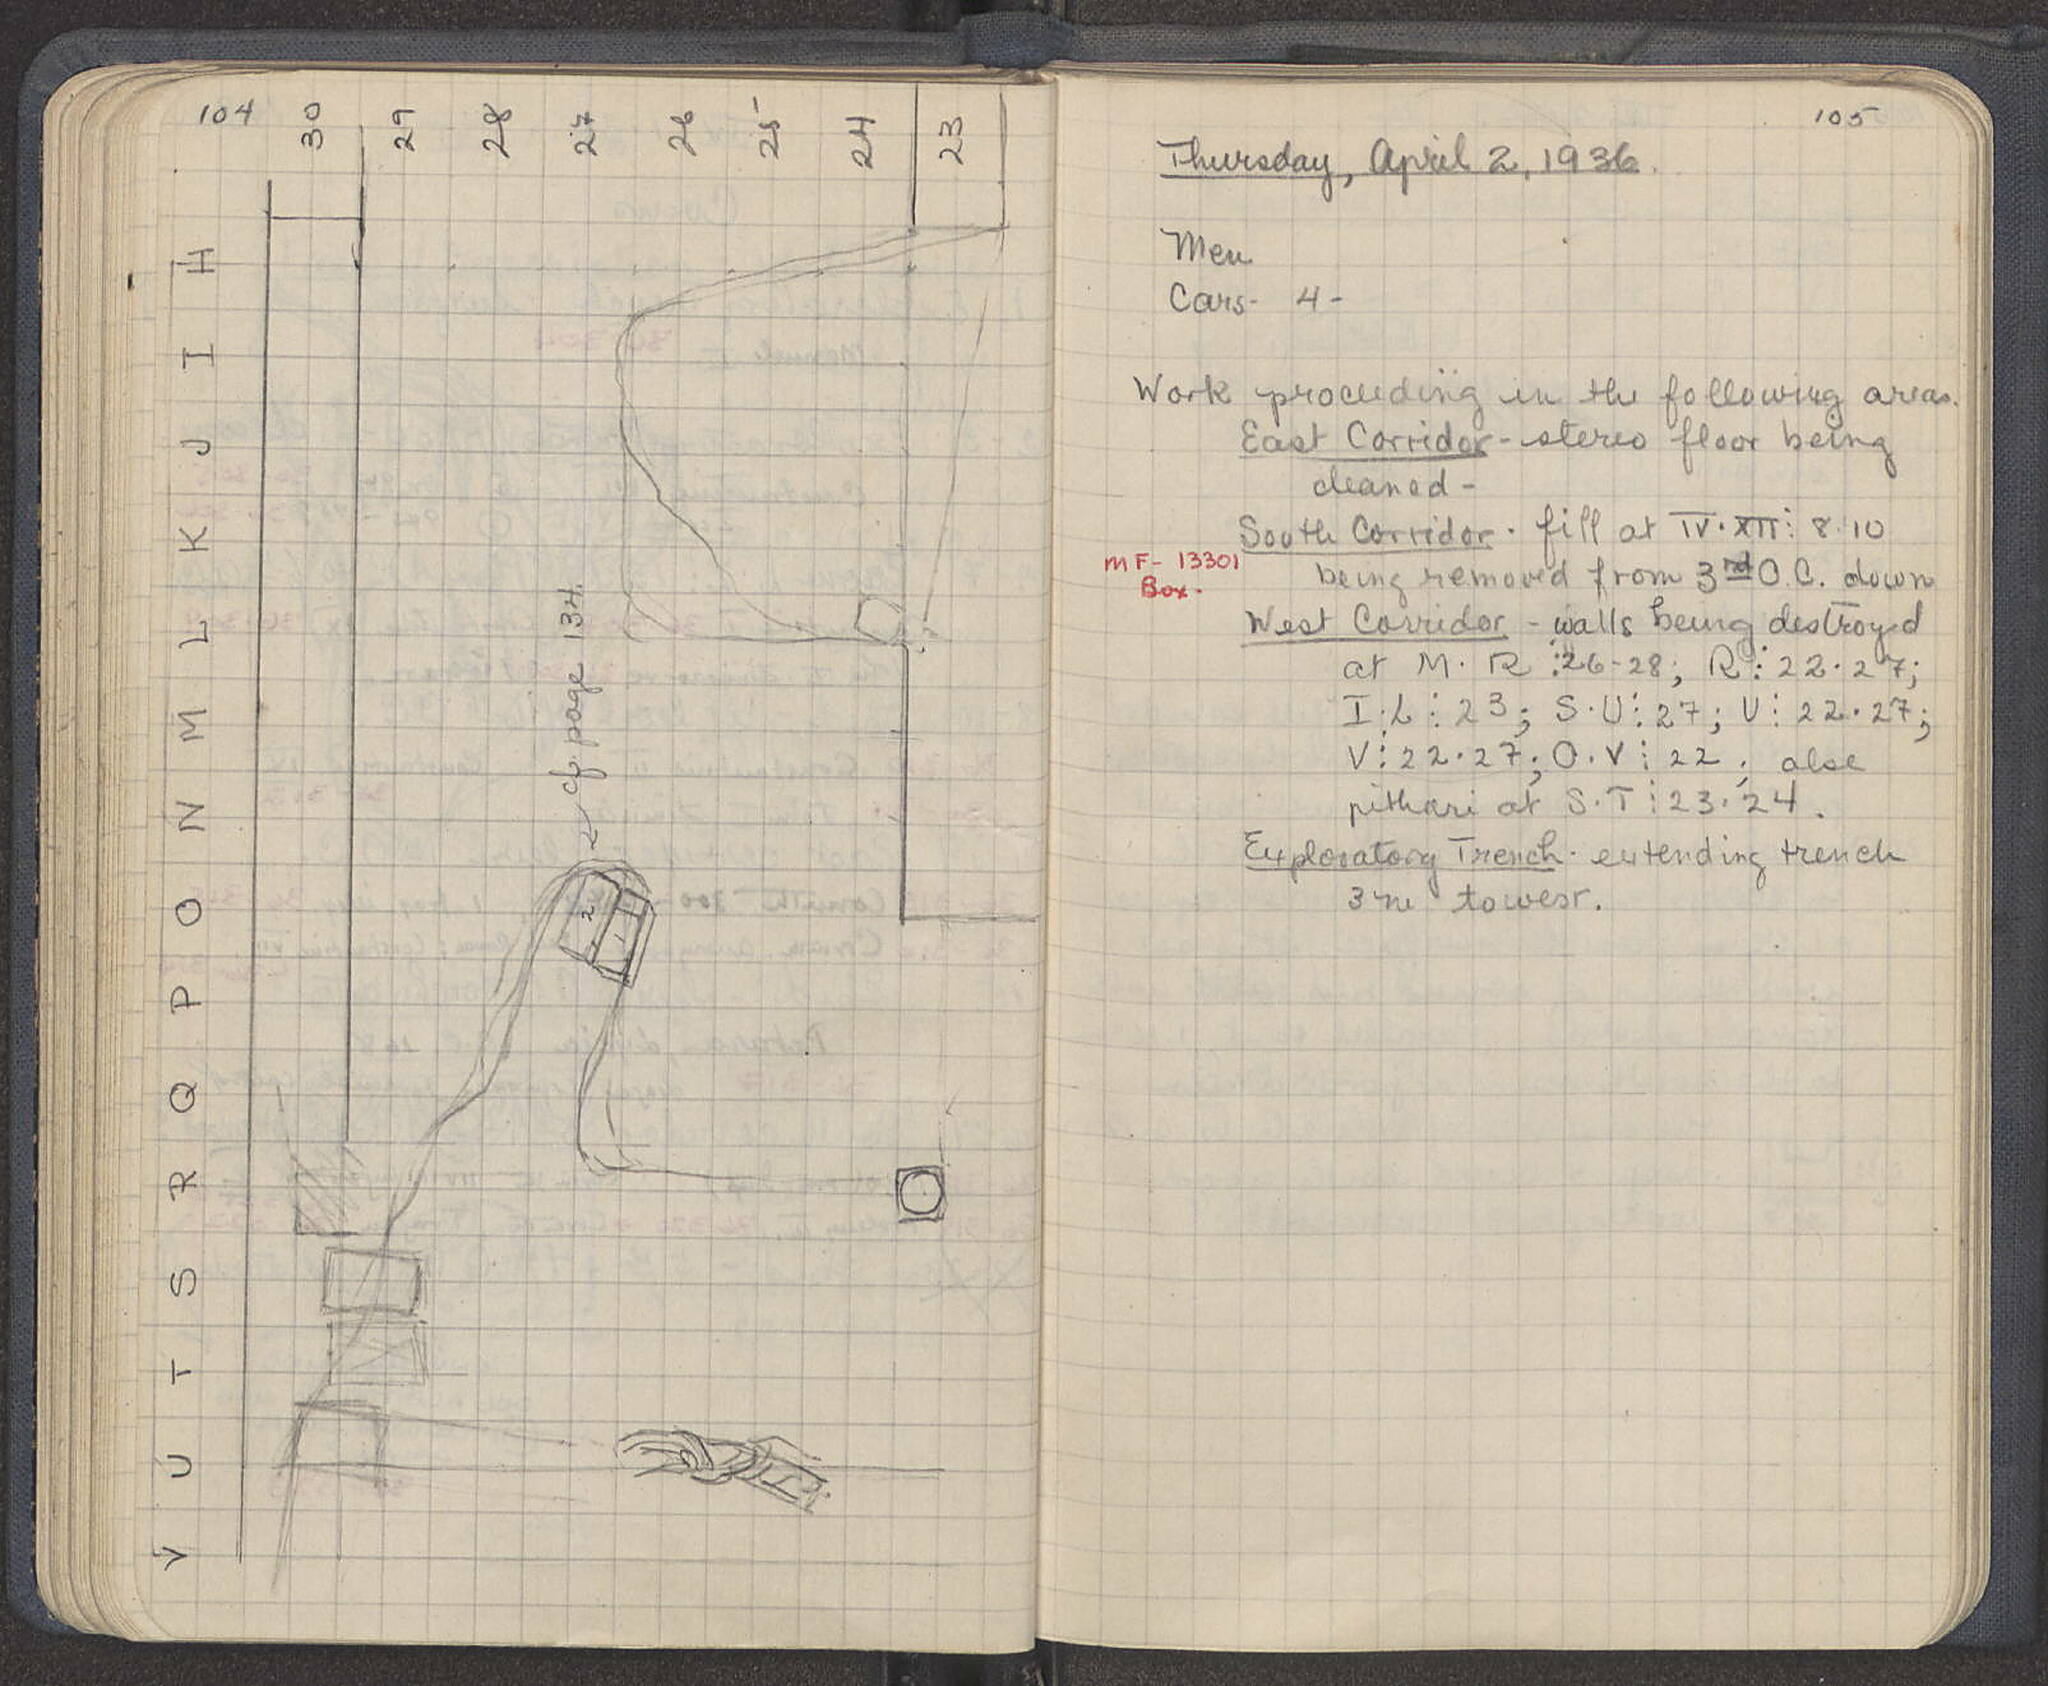 104
30 29 28 27 26 25 24 23
H
I
J
K
L
M
N
O
P
Q
R
S
T
U
V
cf. page 134.
2
1
105
Thursday, April 2, 1936.
Men
Cars- 4-
Work proceeding in the following areas.
East Corridor - stereo floor being
cleaned -
South Corridor - fill at IV·XII: 8·10
MF- 13301
Box.
being removed from 3rd O.C. down
West Corridor - walls being destroyed
at M·R :26-28; R:22·27;
I·L:23; S·U:27; U:22·27;
V:22·27; O·V:22; also
pithari at S·T:23·24.
Exploratory Trench - extending trench
3m to west.